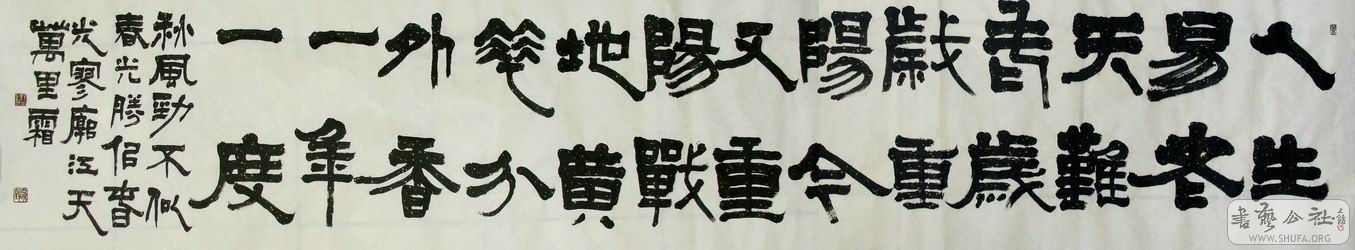 人生
易老
天難
老歲
歲重
陽今
又重
陽戰
地黄
花分
外香
一年
一度
秋風勁不似
春光勝佀春
光寥廓江天
萬里霜
書藝公社
WWW.SHUFA.ORG